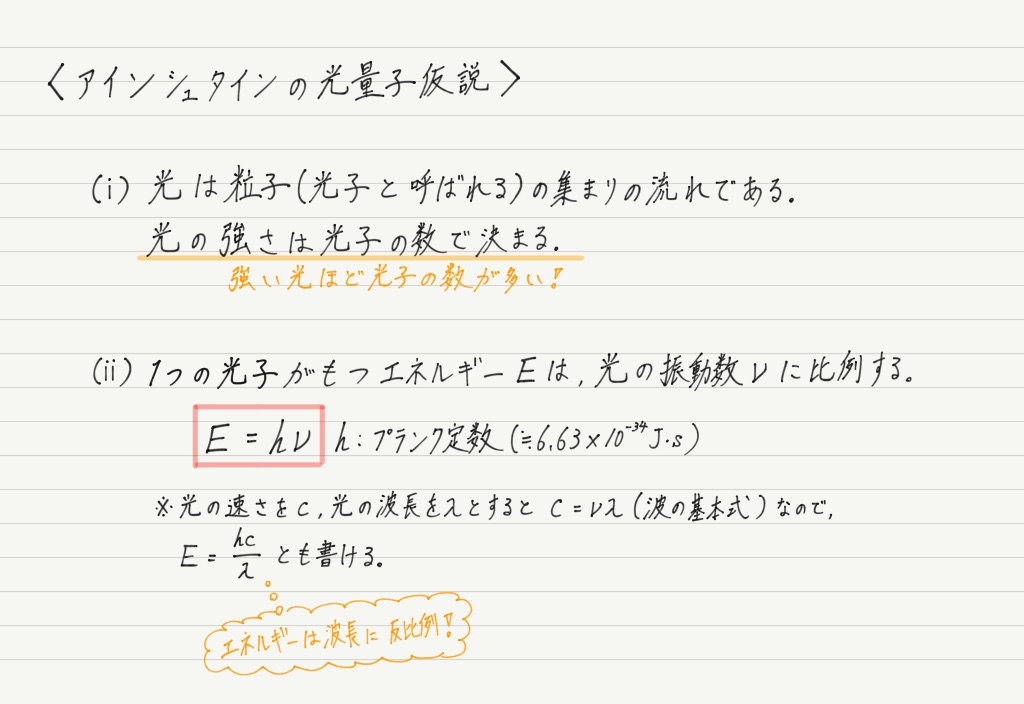 〈アインシュタインの光量子仮説〉
(i) 光は粒子(光子と呼ばれる)の集まりの流れである.
光の強さは光子の数で決まる.
強い光ほど光子の数が多い!
(ii) 1つの光子がもつエネルギーEは, 光の振動数νに比例する。
E = hν h : プランク定数 (≒6.63×10⁻³⁴J・s)
※光の速さをc, 光の波長をλとすると c = νλ (波の基本式) なので,
E = hc/λ とも書ける。
エネルギーは波長に反比例!